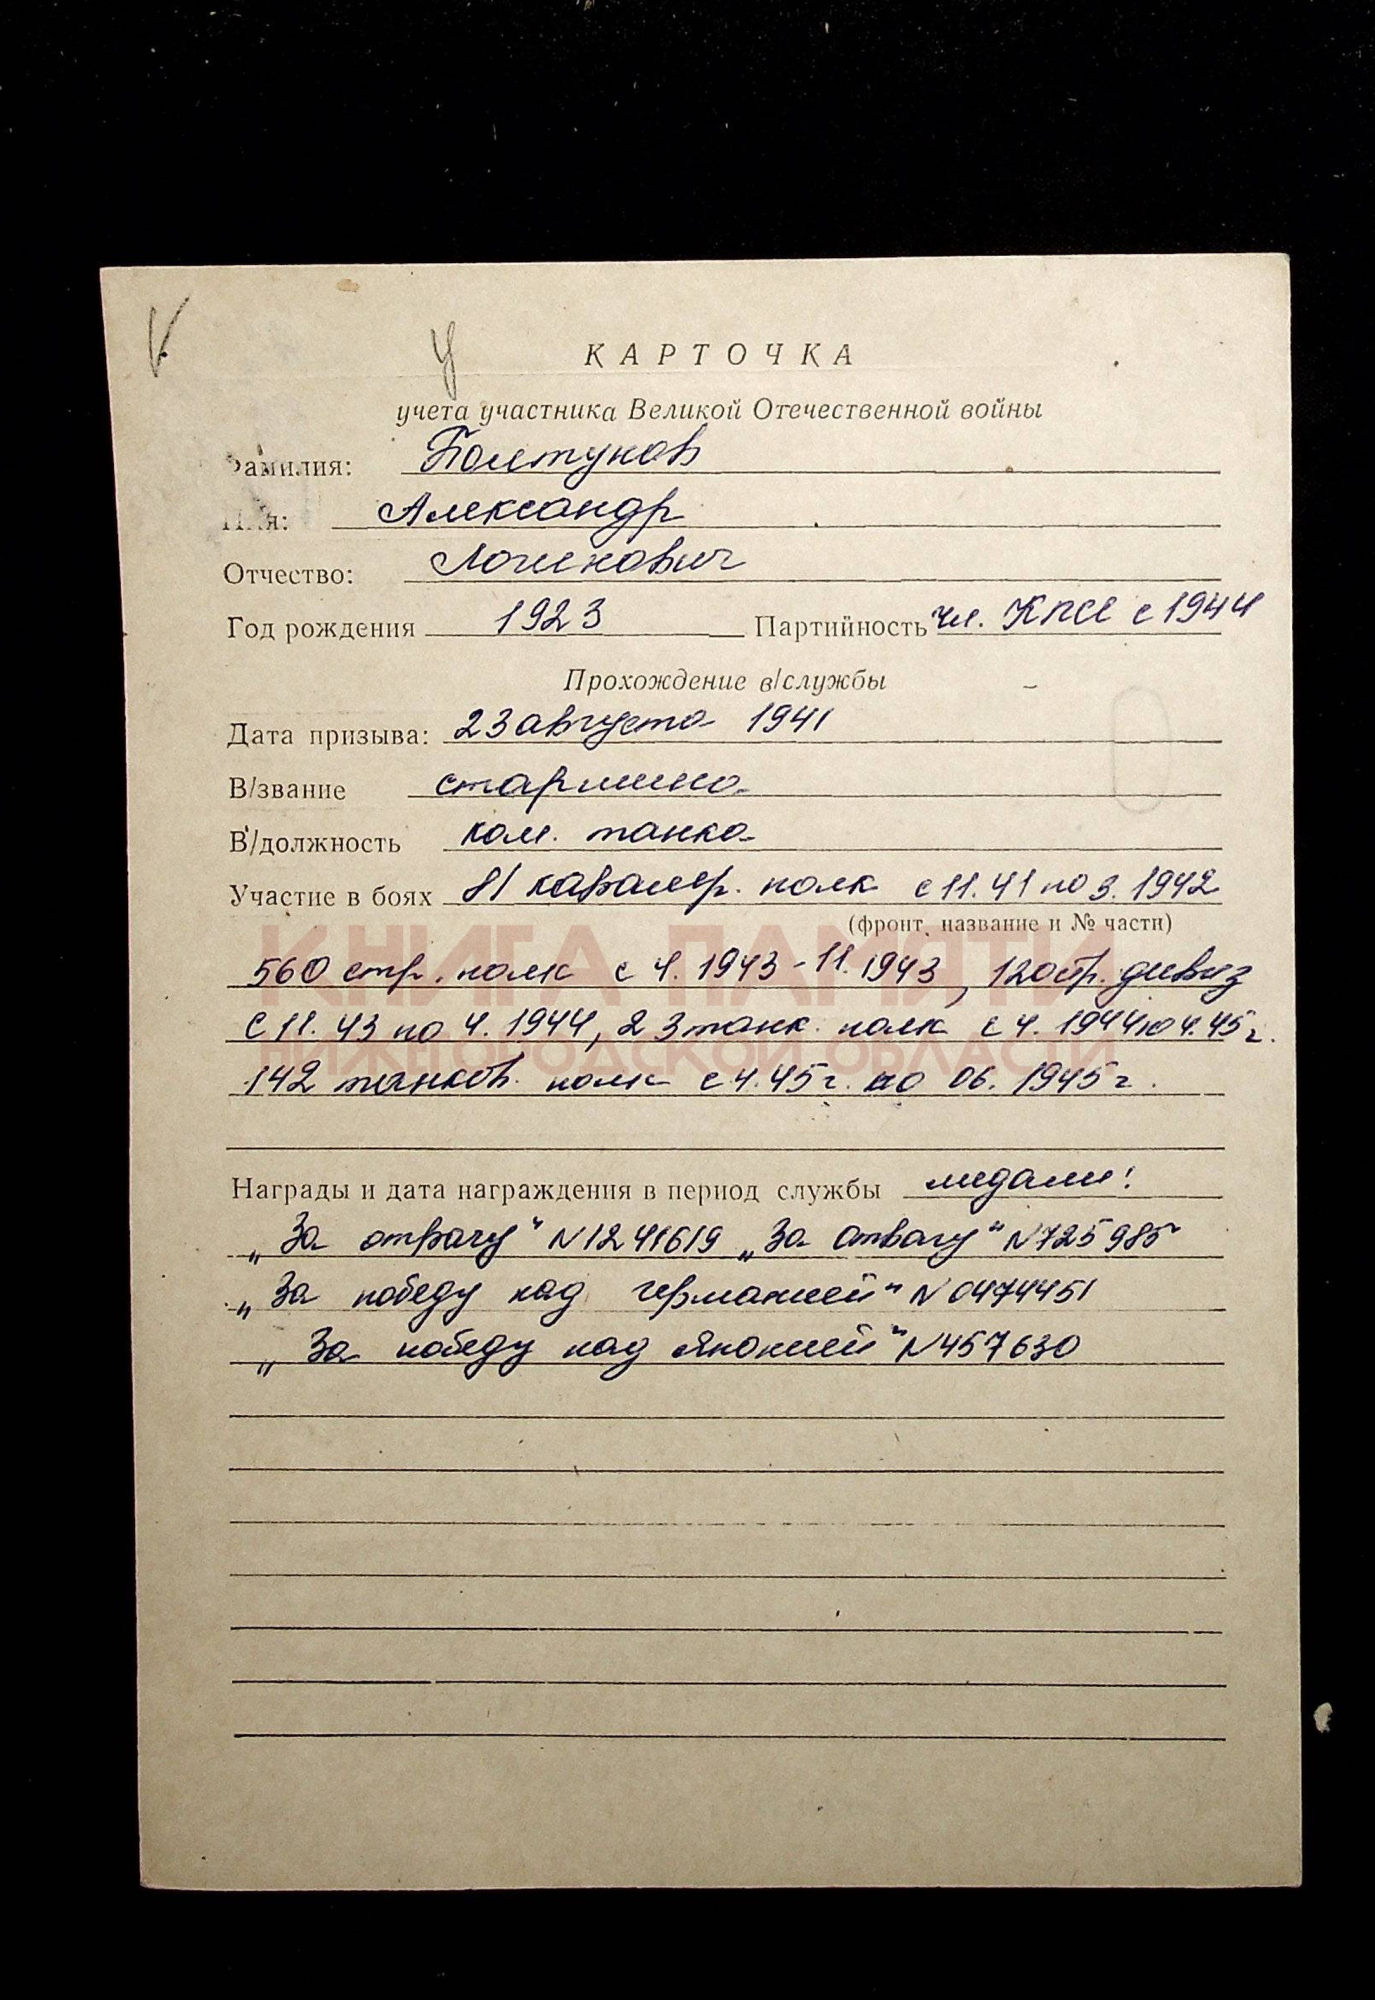 У
КАРТОЧКА
учета участника Великой Отечественной войны
Фамилия: Болтунов
Имя: Александр
Отчество: Логинович
Год рождения 1923 Партийность чл. КПСС с 1944
Прохождение в/службы
Дата призыва: 23 августа 1941
В/звание старшина
В/должность ком. танка
Участие в боях 81 кавалер. полк с 11.41 по 3.1942
(фронт, название и № части)
КНИГА ПАМЯТИ
560 стр. полк с 4.1943-11.1943, 120 стр. дивиз
с 11.43 по 4.1944, 23 танк. полк с 4.1944 по 4.45 г.
НИЖЕГОРОДСКОЙ ОБЛАСТИ
142 танков. полк с 4.45 г. по 06.1945 г.
Награды и дата награждения в период службы медали:
„За отвагу" N1241619 „За отвагу" N725985
„За победу над германией" N0474451
„За победу над Японией" N457630